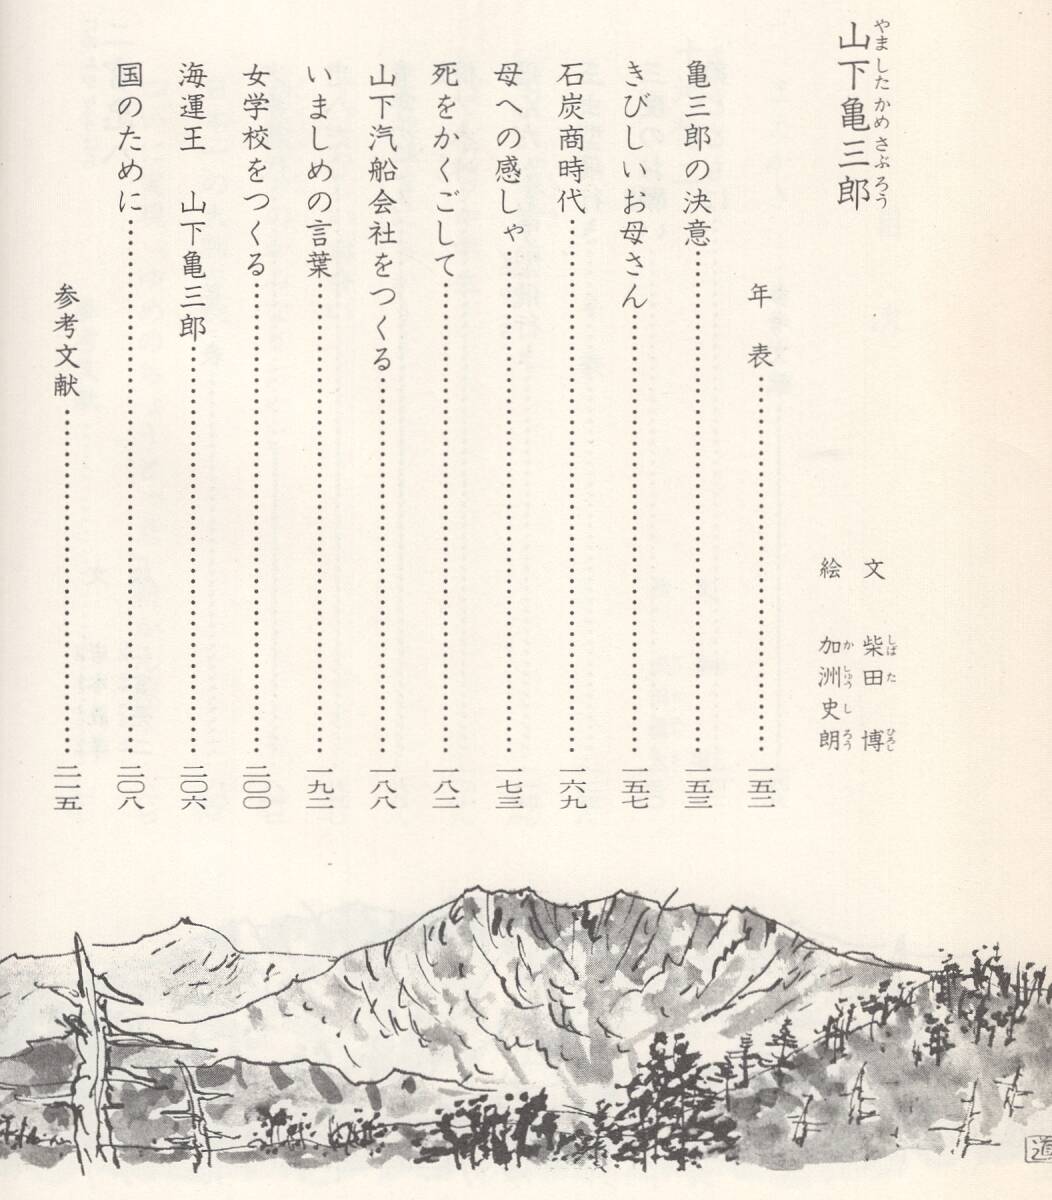 山下亀三郎
やました かめ さぶ ろう
文 柴田 博
しば た ひろし
絵 加洲史朗
か しゅう し ろう
年表……一五二
亀三郎の決意……一五三
きびしいお母さん……一五七
石炭商時代……一六九
母への感しゃ……一七三
死をかくごして……一八二
山下汽船会社をつくる……一八八
いましめの言葉……一九二
女学校をつくる……二〇〇
海運王 山下亀三郎……二〇六
国のために……二〇八
参考文献……二一五
道